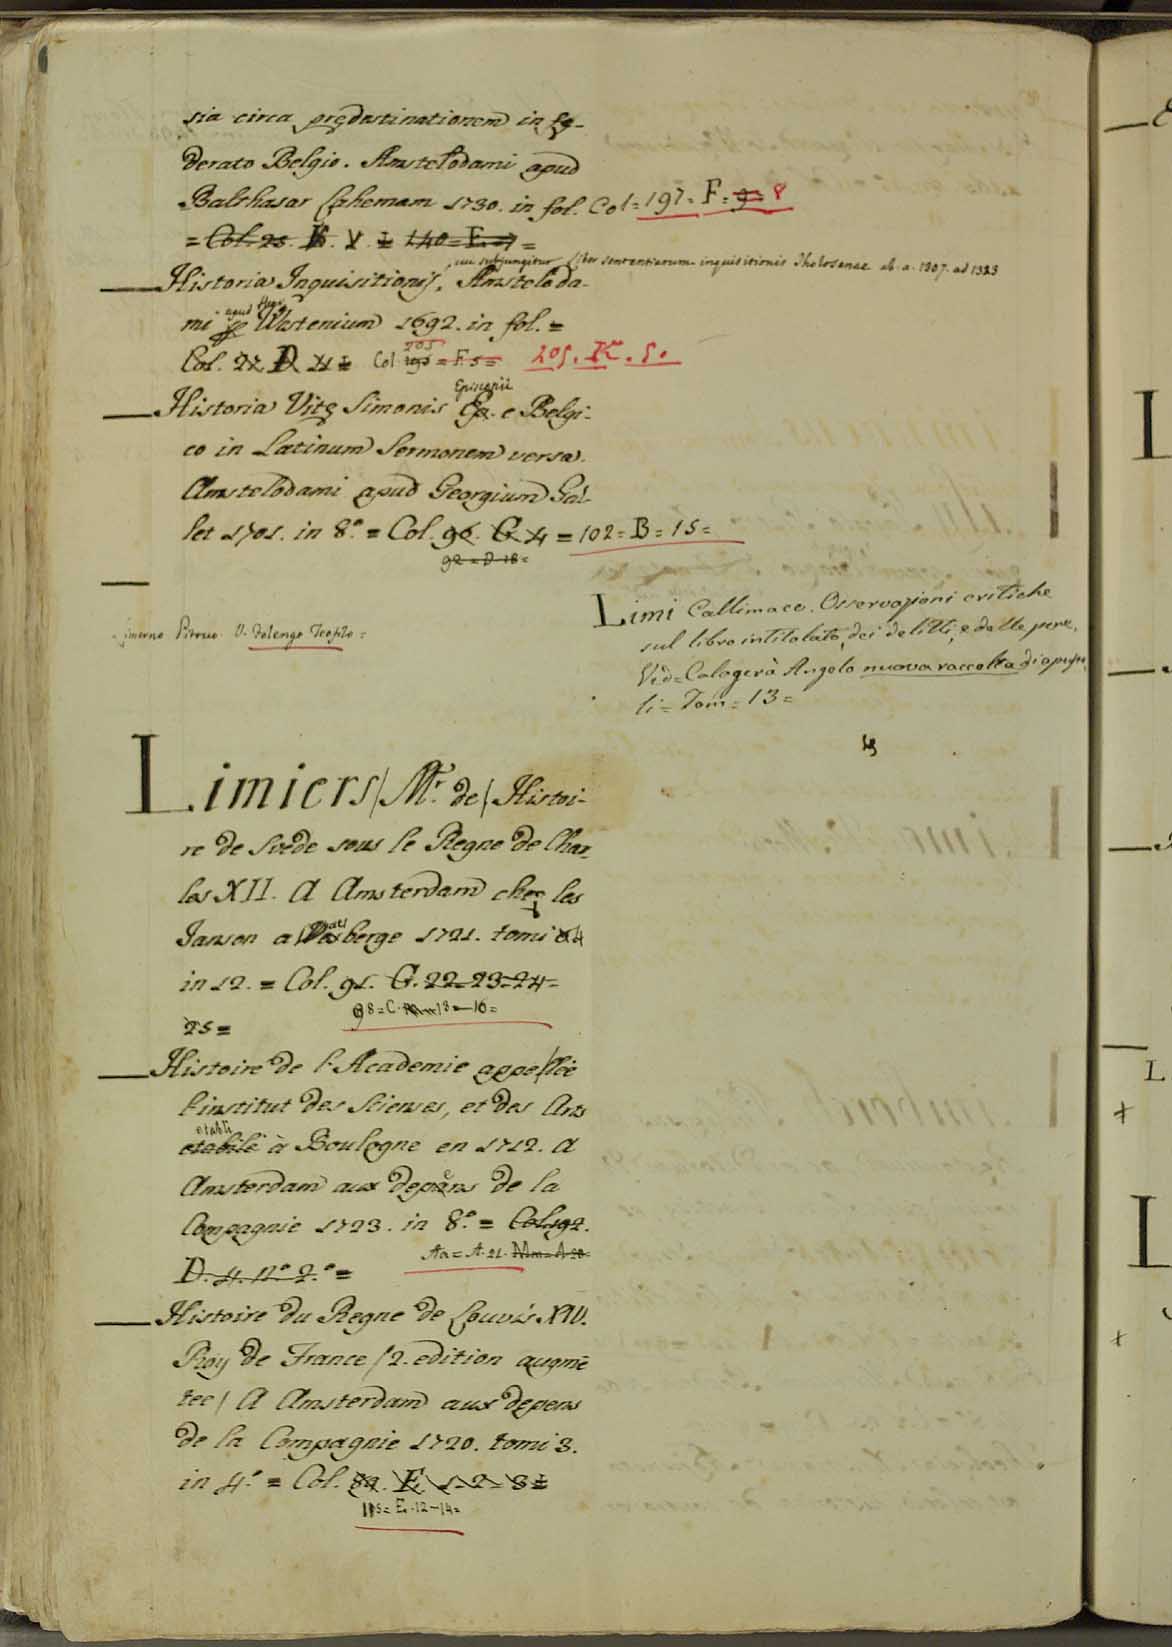 sia circa prędestinationem in fę-
derato Belgio. Amstelodami apud
Balthasar Lahemam 1730. in fol. Col = 197 = F = 9 = 8
= Col. 25. V. I 140 = E =
cui subjungitur Liber sententiarum inquisitionis Tholosanae ab. a. 1307. ad 1323
Historia Inquisitionis, Amsteloda-
mi apud Henr. Wstenium 1692. in fol. =
Col. 22 D 205 Col = F. 5 = 205. K. 5.
Historia Vitę Simonis Episcopii e Belgi-
co in Latinum Sermonem versa.
Amstelodami apud Georgium Gal-
let 1701. in 8.° = Col. 96. G 4 = 102 = B = 15 =
92 = D 18 =
Limerno Pitocco. V. Folengo Teofilo =
Limi Callimaco. Osservazioni critiche
sul libro intitolato, dei delitti, e delle pene.
Ved = Calogerà Angelo nuova raccolta di opusco
li = Tom = 13 =
Limiers / Mr. de / Histoi-
re de Svede sous le Regne de Char-
les XII. A Amsterdam chez les
Janson a Waesberge 1721. tomi 4
in 12. = Col. 91. G. 22 = 23 = 24 =
98 = C. 13 — 16 =
25 =
Histoire de l'Academie appellée
l'institut des Scienses, et des Arts
etabli
etabilé à Boulogne en 1712. A
Amsterdam aux depens de la
Compagnie 1723. in 8.° = Col. 92.
Aa = A. 21. Mm = A 20
D. 4. n.° 2.° =
Histoire du Regne de Louvis XIV.
Roy de France / 2. edition augmē
tee / A Amsterdam aux depens
de la Compagnie 1720. tomi 3.
in 4.° = Col. 84. E 1 - 2 - 3 =
115 = E. 12 — 14 =